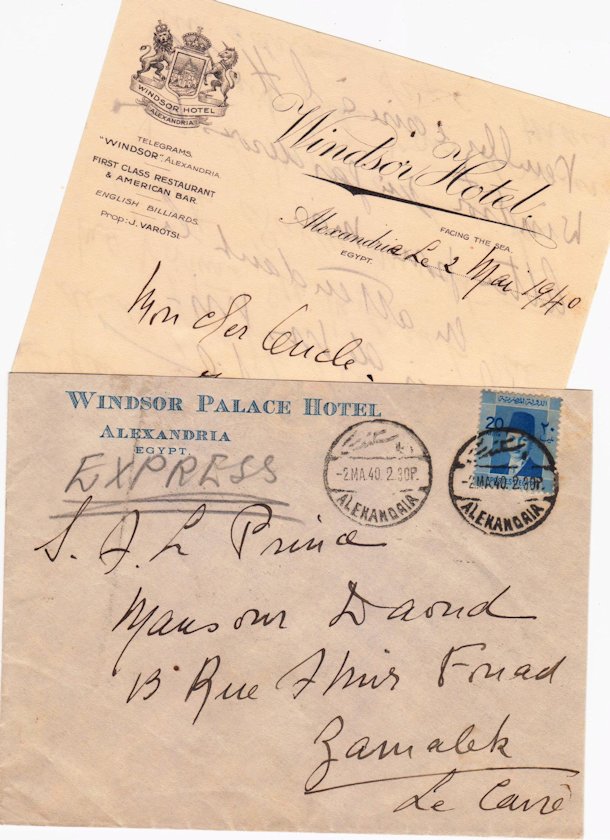 WINDSOR HOTEL
ALEXANDRIA
TELEGRAMS.
"WINDSOR" ALEXANDRIA.
FIRST CLASS RESTAURANT
& AMERICAN BAR.
ENGLISH BILLIARDS.
Prop: J. VAROTSI.
Windsor Hotel.
FACING THE SEA.
Alexandria Le 2 Mai 1940
EGYPT.
Mon cher Oncle.
WINDSOR PALACE HOTEL
ALEXANDRIA
EGYPT.
EXPRESS
20 ٢٠
-2MA.40. 2.30P.
ALEXANDRIA
-2MA.40. 2.30P.
ALEXANDRIA
S. A. Le Prince
Mansour Daoud
13 Rue Amir Fouad
Zamalek
Le Caire